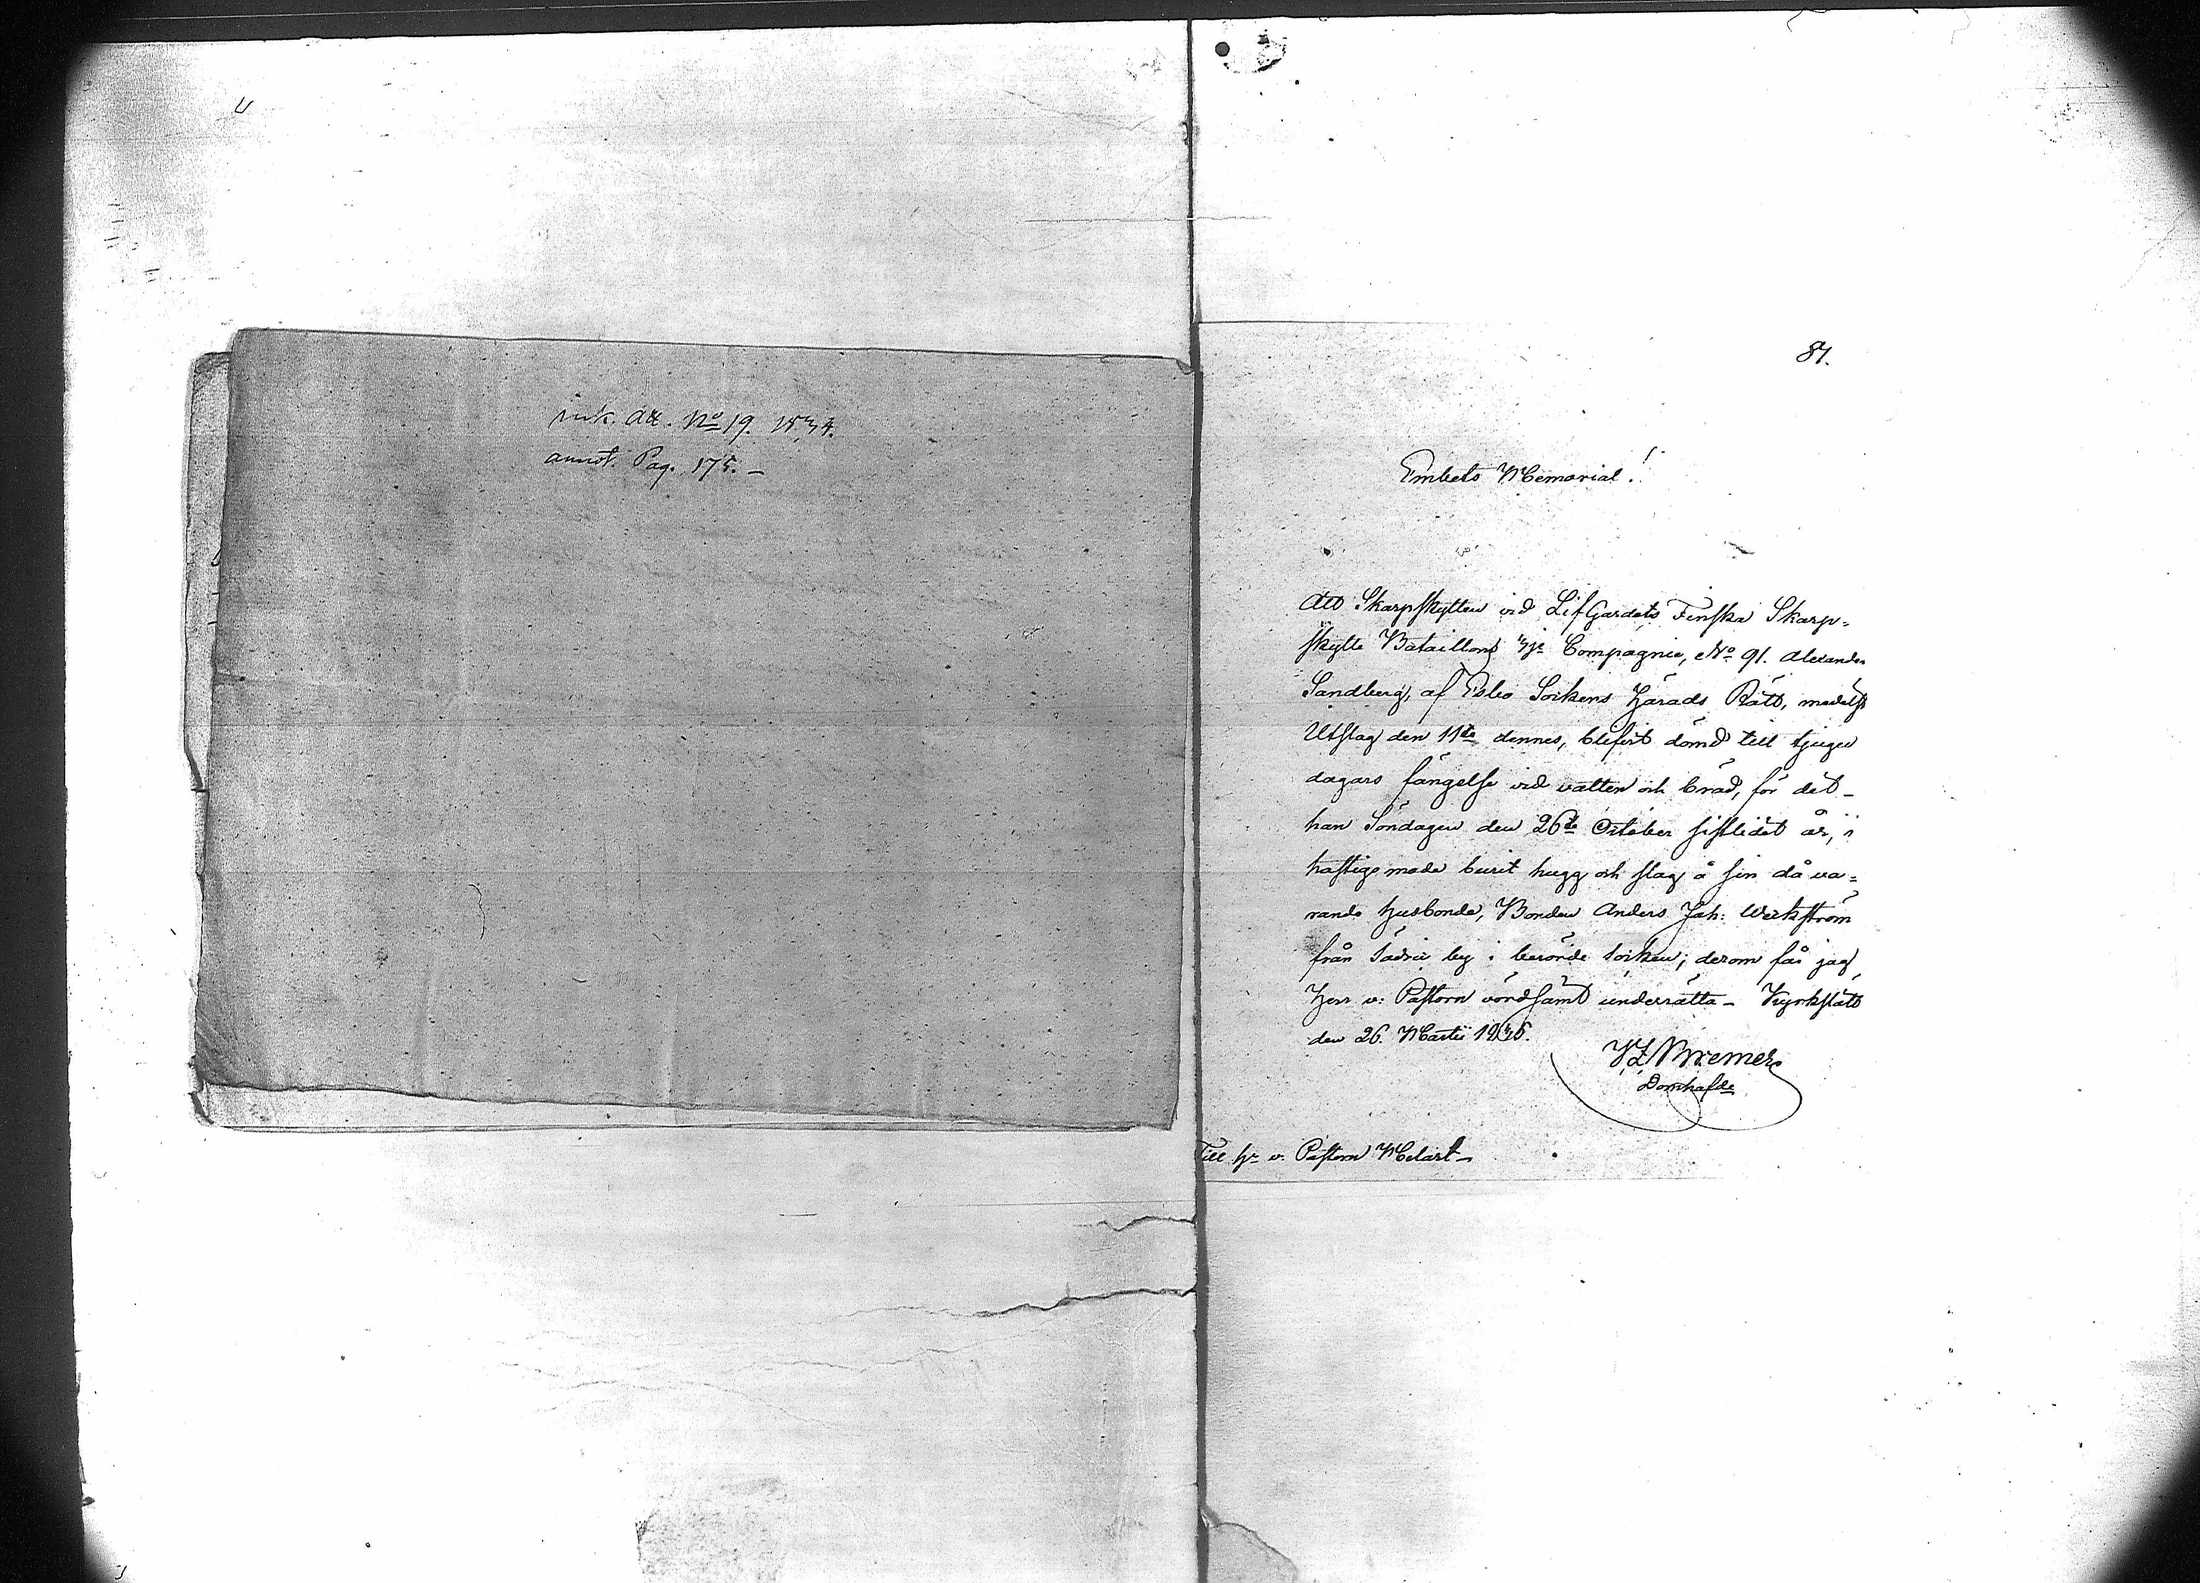 ink. att. No 19. 1834.
annot. Pag. 175. –
84.
Embets Memorial!
Att Skarpskytten vid LifGardets Finska Skarp-
skytte Bataillons 3je Compagnie, No 91. Alexander
Sandberg, af Esbo Sockens Härads Rätt, medelst
Utslag den 11te dennes, blifvit dömd till tjugu
dagars fängelse vid vatten och bröd, för det –
han Söndagen den 26te October sistlidet år, i
hastigo mode burit hugg och slag å sin då va-
rande husbonde, Bonden Anders Joh: Werkström
från by i berörde socken; derom får jag
Herr v: Pastorn vördsamt underrätta – Kyrkslätt
den 26. Martii 1835.
Bremer
Domhafde
Till Hr v. Pastorn Melart –